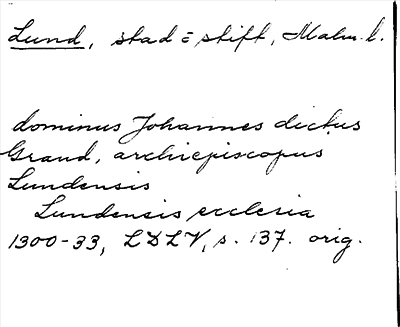 Lund, stad = stift, Malm. l.
dominus Johannes dictus
Grand, archiepiscopus
Lundensis
Lundensis ecclesia
1300-33, LDLV, s. 137. orig.